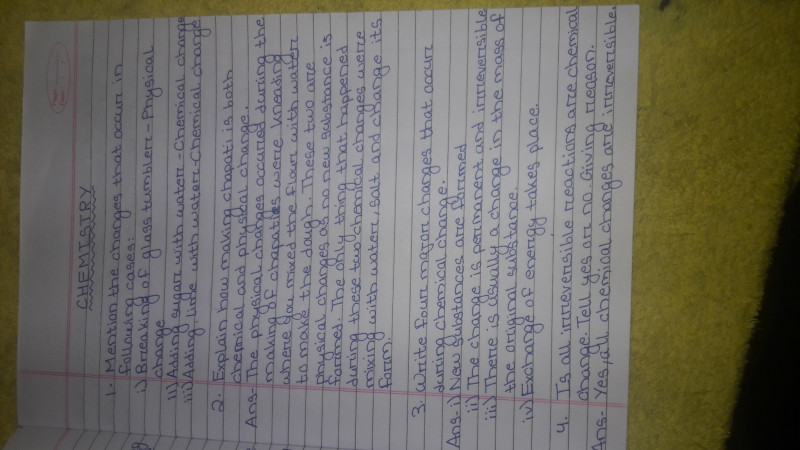 CHEMISTRY
1. Mention the changes that occur in
following cases:
i) Breaking of glass tumbler - Physical
change
ii) Adding sugar with water - Chemical change
iii) Adding lime with water - Chemical change
2. Explain how making chapati is both
chemical and physical change.
Ans- The physical changes occured during the
making of chapaties were kneading
where you mixed the flour with water
to make the dough. These two are
physical changes as no new substance is
formed. The only thing that happened
during these two chemical changes were
mixing with water, salt and change its
form.
3. Write four major changes that occur
during chemical change.
Ans- i) New substances are formed
ii) The change is permanent and irreversible
iii) There is usually a change in the mass of
the original substance.
iv) Exchange of energy takes place.
4. Is all irreversible reactions are chemical
change. Tell yes or no. Giving reason.
Ans- Yes, all chemical changes are irreversible.